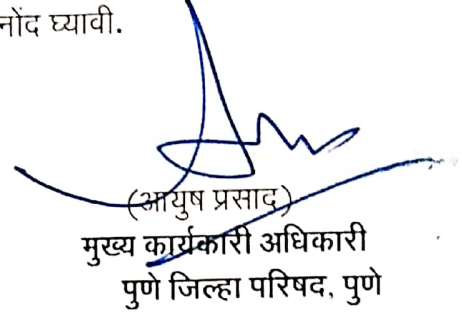 नोंद घ्यावी.
(आयुष प्रसाद)
मुख्य कार्यकारी अधिकारी
पुणे जिल्हा परिषद, पुणे